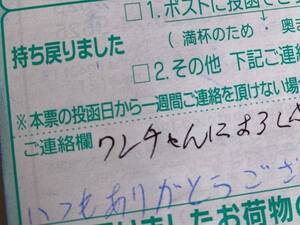 □1.ポストに投函でき
(満杯のため↓奥ま
持ち戻りました
□2.その他 下記ご連絡
※本票の投函日から一週間ご連絡を頂けない場合
ご連絡欄 ワンチャんによろしさ
いつもありがとうござ
りましたお荷物の